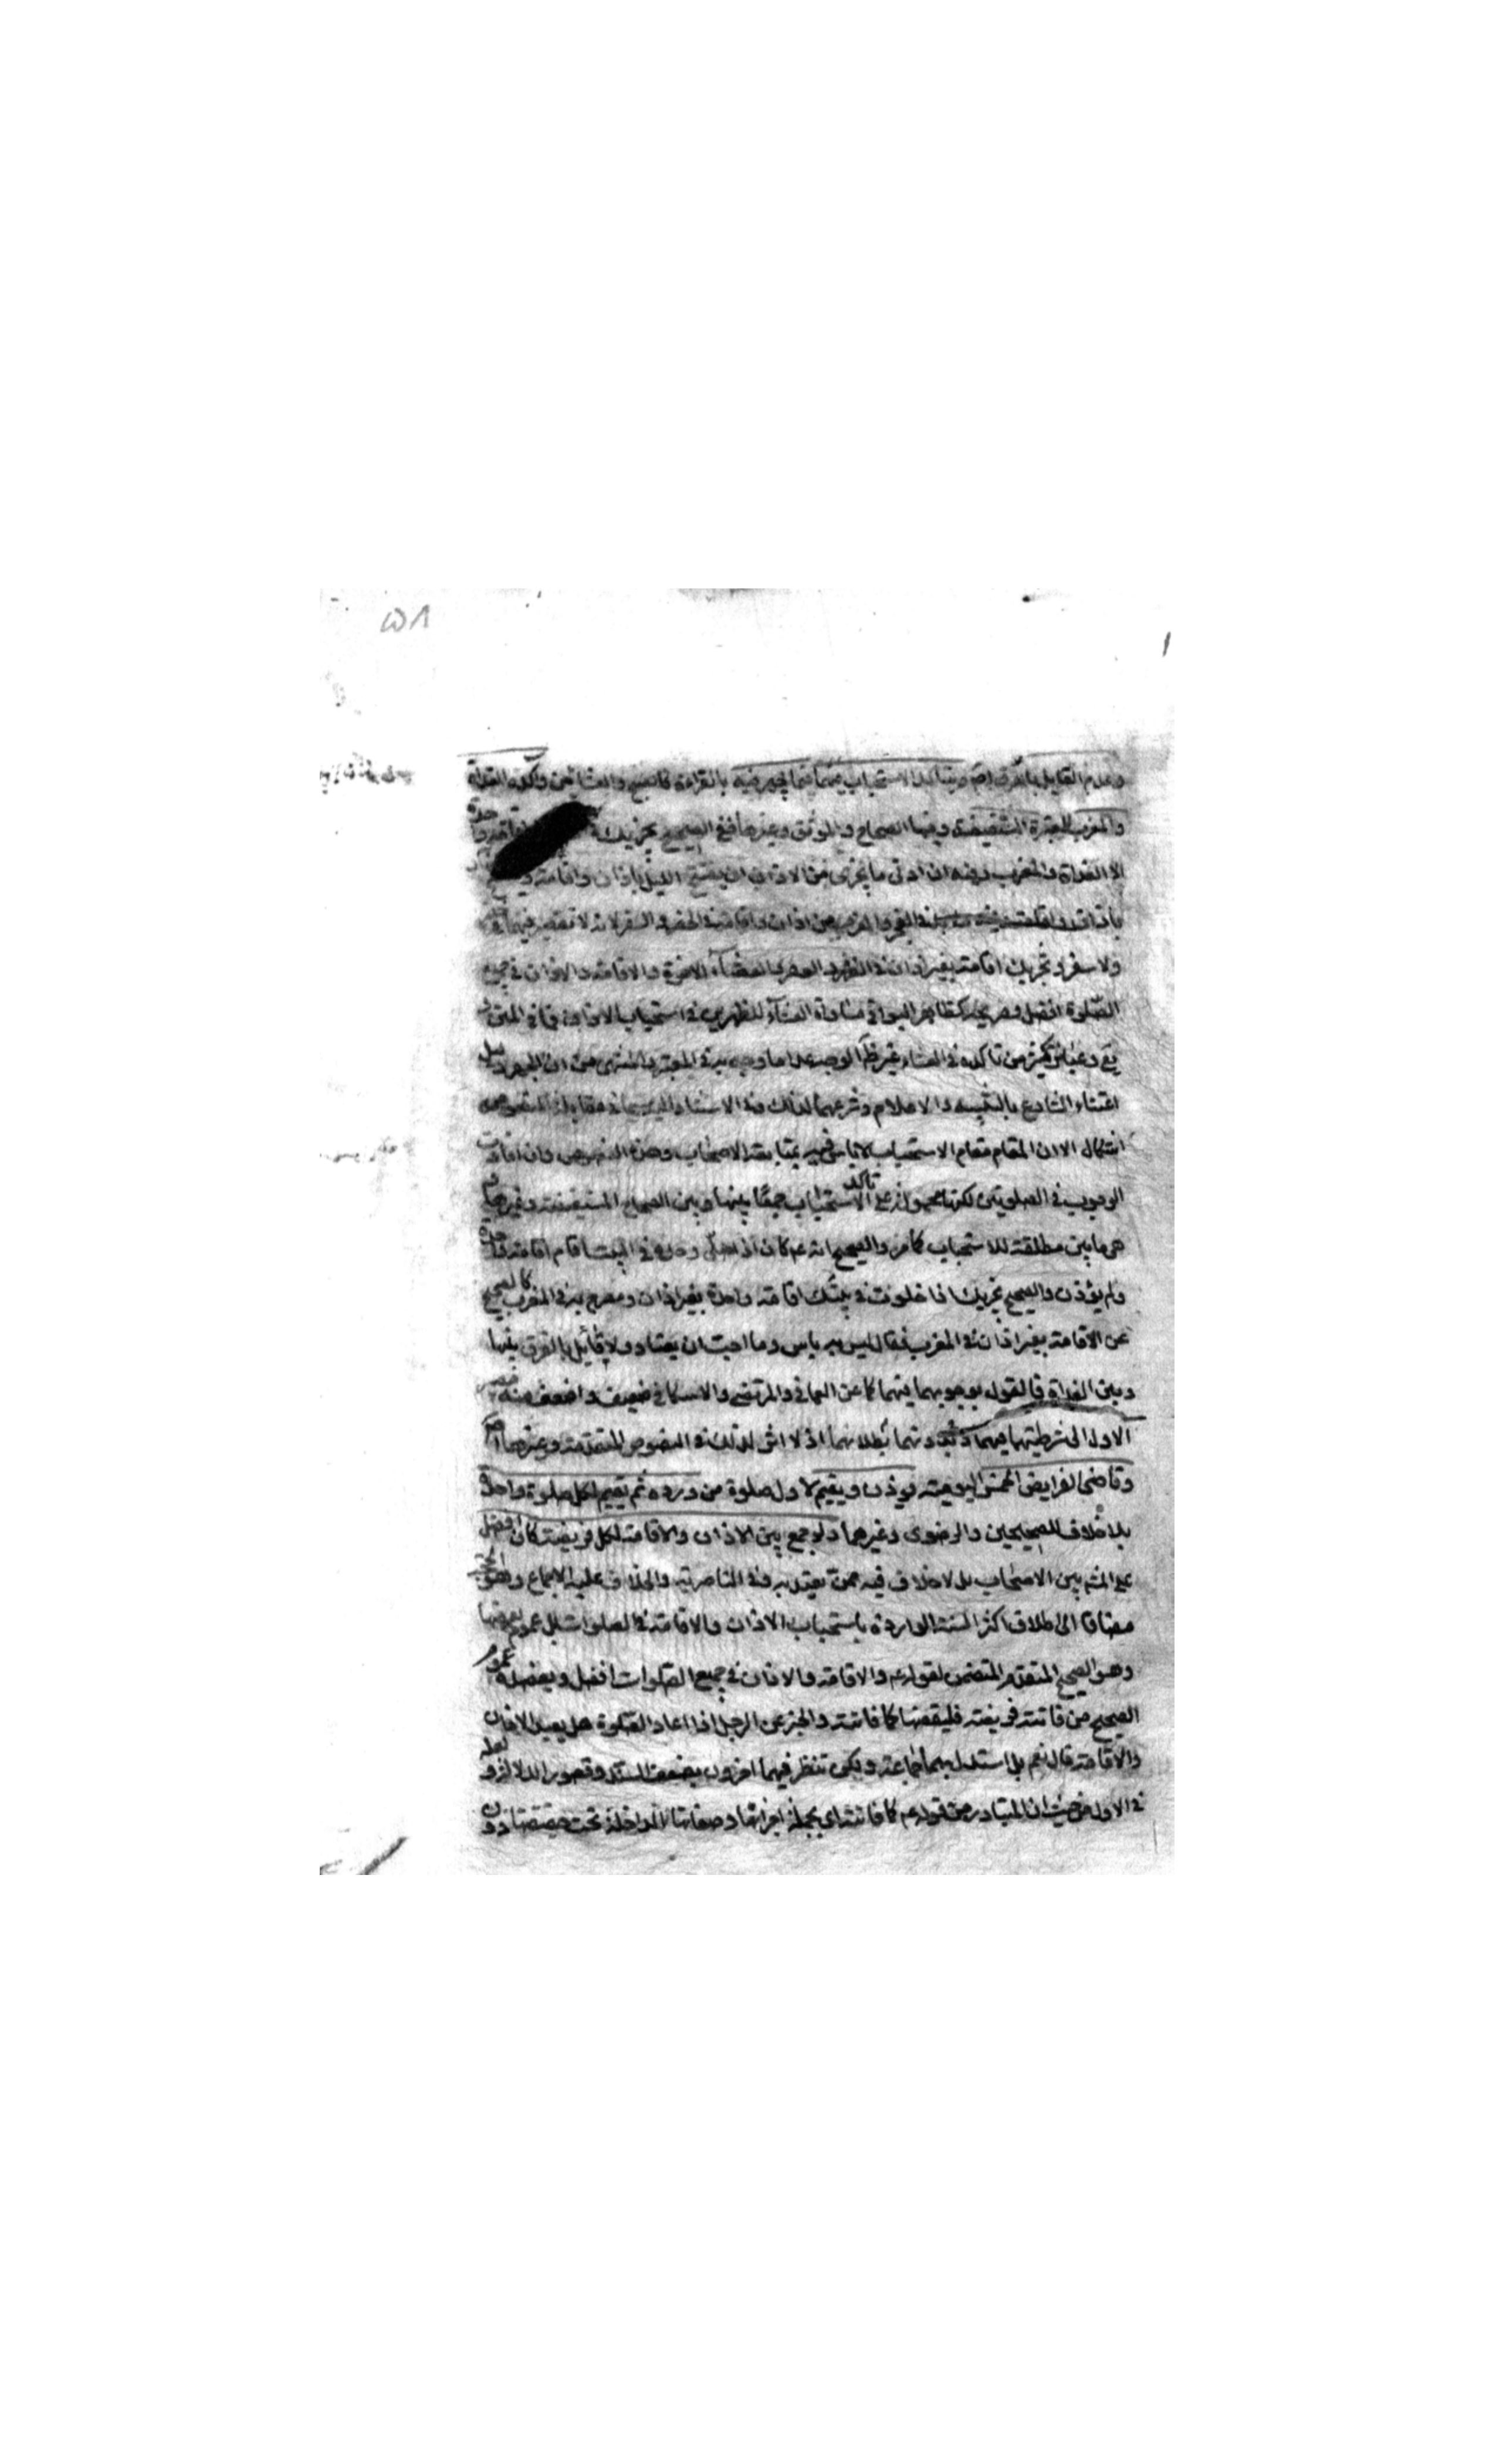 ٥٨
وعدم القايل بالفرق اصّ ويتاكد الاستحباب فيهما فيما يجهر فيه بالقراءة كالصبح والعشائين واكده الغداة
والمغرب للمعتبرة المستفيضة وفيها الصحاح والموثق وغيرها ففي الصحيح يجزيك اقامة واحدة
الا الغداة والمغرب وفيه ان ادنى ما يجزى من الاذان ان يفتتح الليل باذان واقامة و
باذان واقامة الفجر والمغرب من اذان واقامة في الحضر والسفر لانه لا تقصير فيهما في
ولا سفر وتجزيك اقامة بغير اذان في الظهر والعصر والعشآء الاخرة والاقامة والاذان في جميع
الصلوة افضل وصريحه كظاهر البواقي مساواة العشآء للظهرين في استحباب الاذان فما في المتن
يع وعبائر كثير من تاكده في العشاء غير ظ الوجه عدا ما وجه به في المعتبر والمنتهى من ان الجهر دليل
اعتناء الشارع بالتنبيه والاعلام وشرعهما لذلك وفي الاستناد اليه سيما في مقابلة النصوص
اشكال الا ان المقام مقام الاستحباب لا باس فيه بمتابعة الاصحاب وهذه النصوص وان افادت
الوجوب في الصلوتين لكنها محمولة على تاكد الاستحباب جمعًا بينها وبين الصحاح المستفيضة وغيرها
هي ما بين مطلقة للاستحباب كما مر والصحيح انه عم كان اذا صلى وحده في البيت اقام اقامة واحدة
ولم يؤذن والصحيح يجزيك اذا خلوت في بيتك اقامة واحدة بغير اذان ومصرح به في المغرب كالصحيح
عن الاقامة بغير اذان في المغرب فقال ليس به باس وما احب ان يعتاد ولا قائل بالفرق بينها
وبين الغداة فالقول بوجوبهما فيهما كما عن العماني والمرتضى والاسكافي ضعيف واضعف منه
الاول الى شرطيتهما فيهما وبدونهما بطلانهما اذ لا اثر لذلك في النصوص المتقدمة وغيرها اص
وقاضى الفرايض الخمس اليومية يؤذن ويقيم لاول صلوة من ورده ثم يقيم لكل صلوة واحدة
بلا خلاف للصحيحين والرضوى وغيرهما ولو جمع بين الاذان والاقامة لكل فريضة كان افضل
على المشهر بين الاصحاب بل لا خلاف فيه ممن يعتد به وفي الناصرية والخلاف عليه الاجماع وهو الحجة
مضافا الى اطلاق اكثر السنة الواردة باستحباب الاذان والاقامة في الصلوات بل عموم بعضها
وهو الصحيح المتقدم المتضمن لقوله عم والاقامة والاذان في جميع الصلوات افضل ويعضده عموم
الصحيح من فاتته فريضة فليقضها كما فاتته والخبر عن الرجل اذا اعاد الصلوة هل يعيد الاذان
والاقامة قال نعم بل استدل بهما جماعة ولكن تنظر فيهما اخرون بضعف السند وقصور الدلالة ولعله
في الاول من حيث ان المتبادر من قوله عم كما فاتته اي بجملة اجزائها وصفاتها الداخلة تحت حقيقتها دون